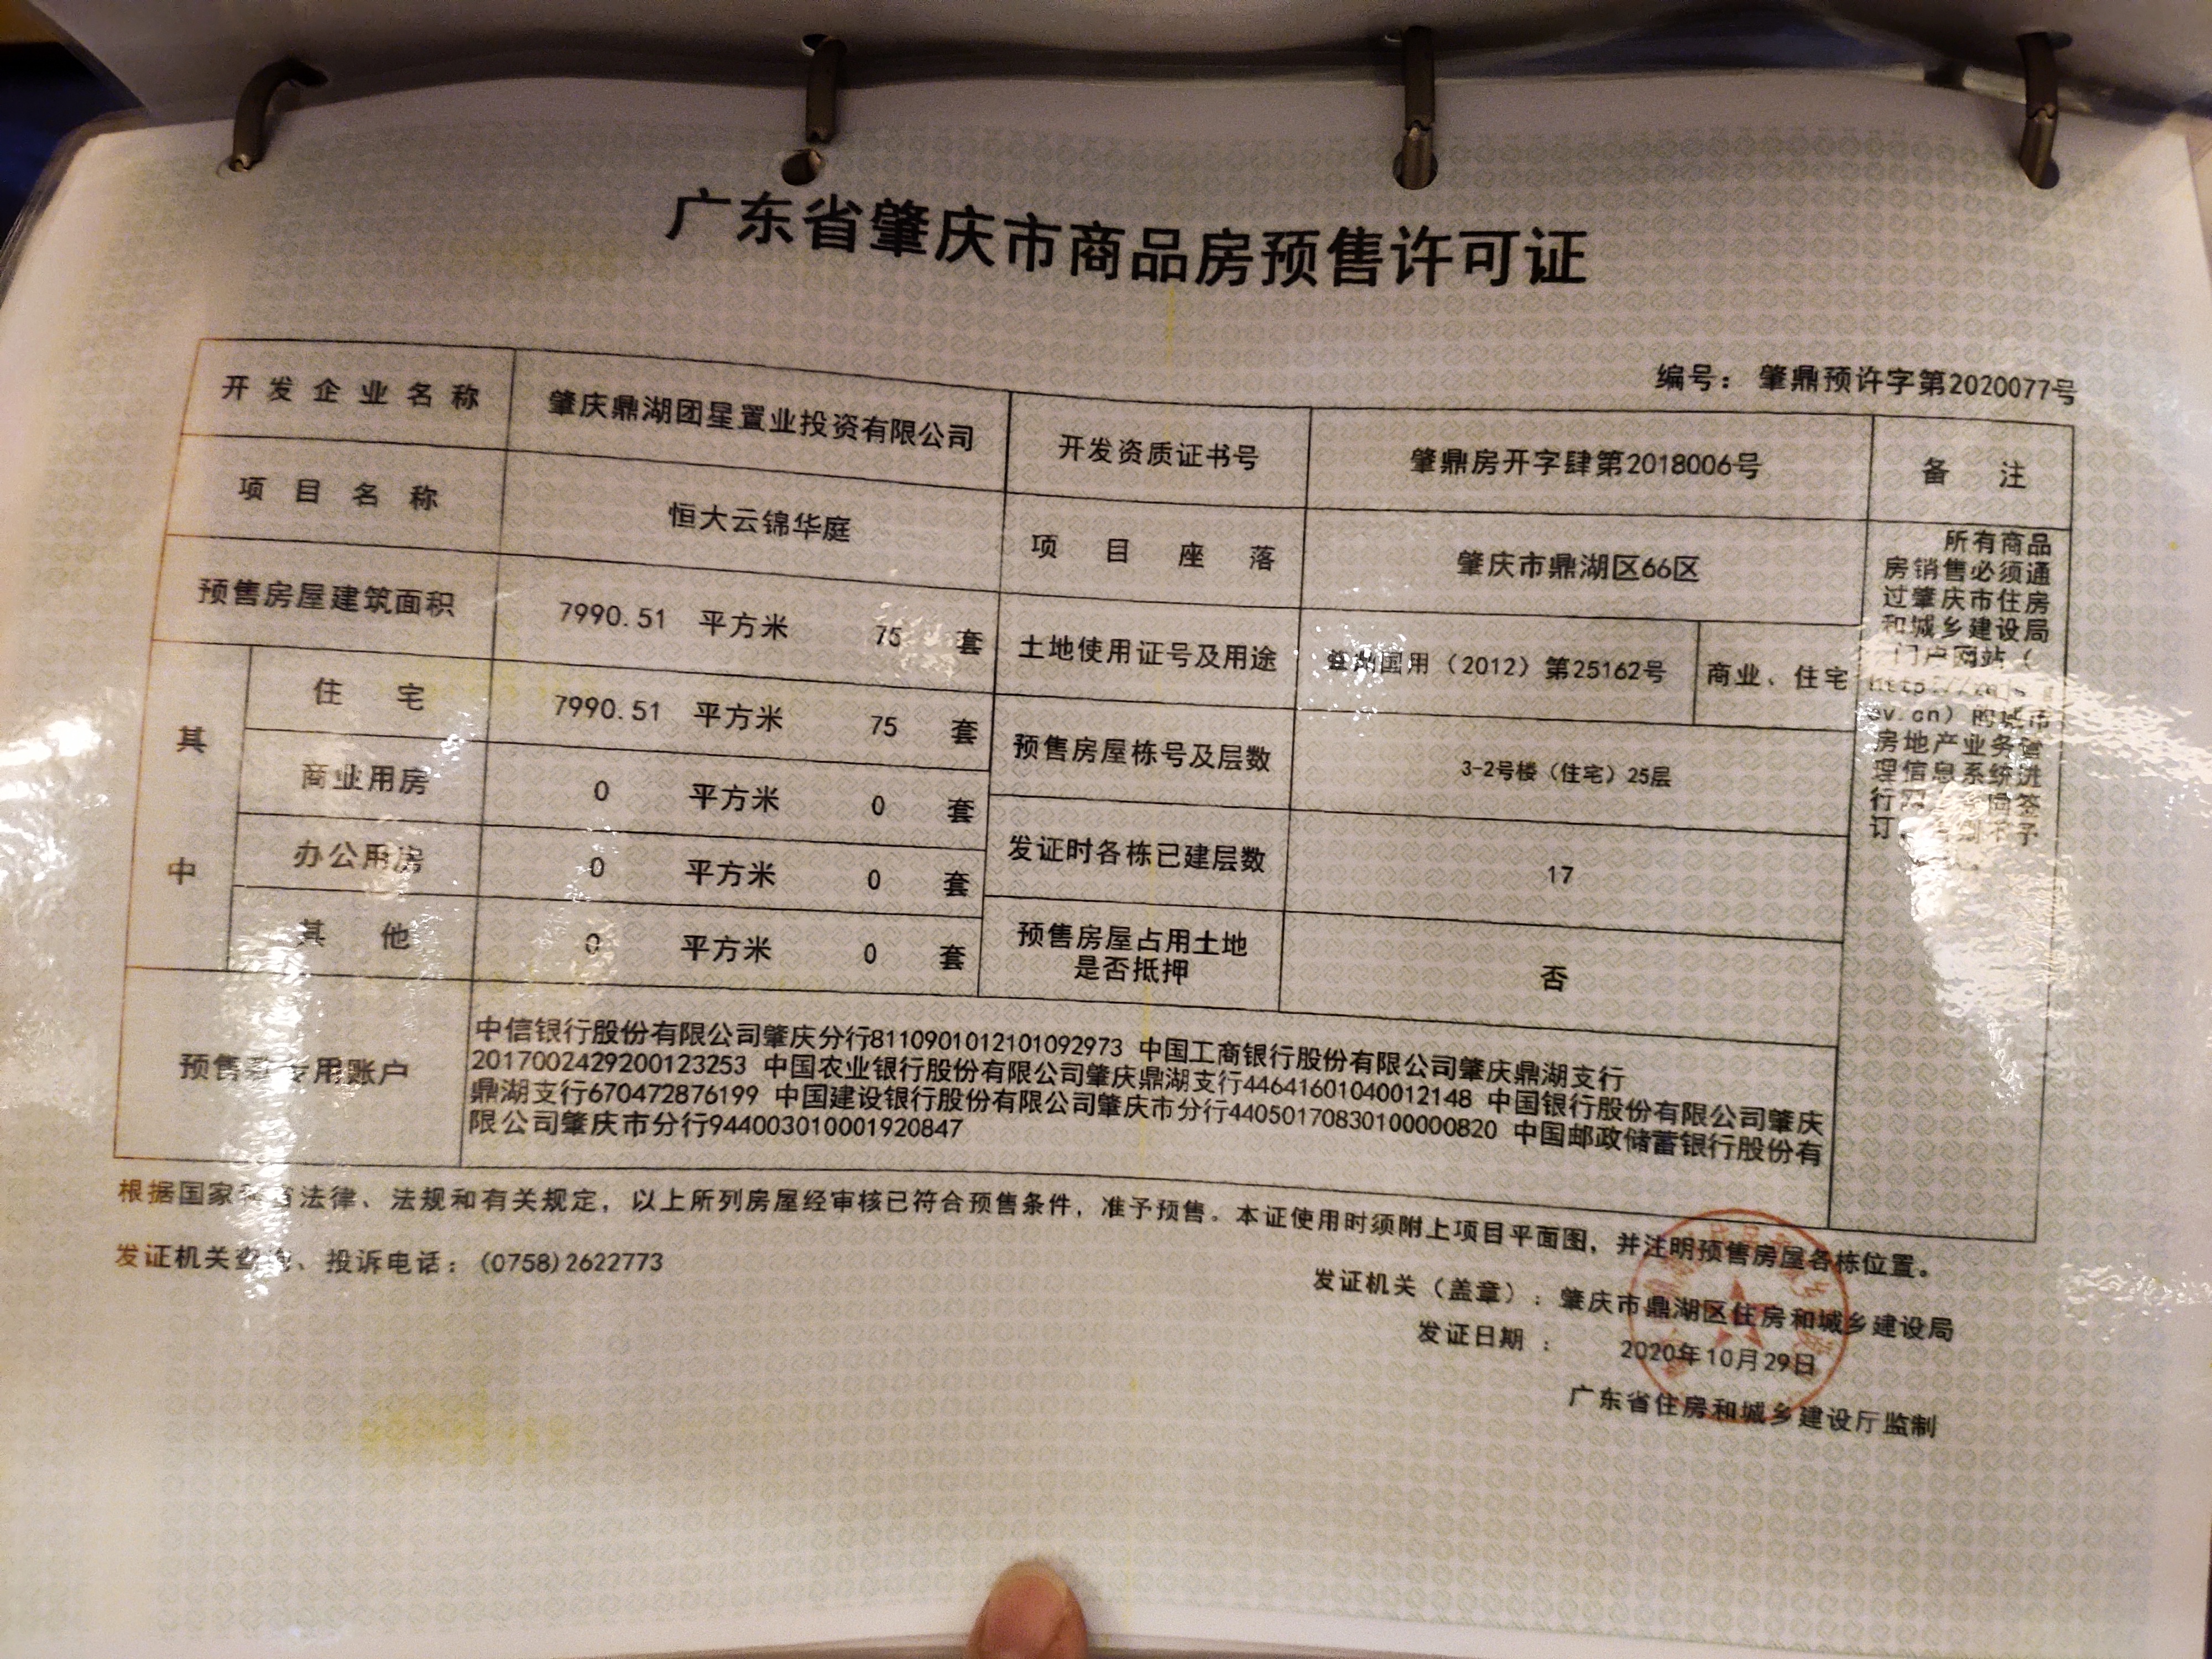 广东省肇庆市商品房预售许可证
编号： 肇鼎预许字第2020077号
开发企业名称 肇庆鼎湖团星置业投资有限公司 开发资质证书号 肇鼎房开字肆第2018006号 备 注
项目名称 恒大云锦华庭 项目座落 肇庆市鼎湖区66区
预售房屋建筑面积 7990.51 平方米 75 套 土地使用证号及用途 国用（2012）第25162号 商业、住宅
其中
住 宅 7990.51 平方米 75 套 预售房屋栋号及层数 3-2号楼（住宅）25层
商业用房 0 平方米 0 套 发证时各栋已建层数 17
办公用房 0 平方米 0 套
其 他 0 平方米 0 套 预售房屋占用土地
是否抵押 否
所有商品
房销售必须通
过肇庆市住房
和城乡建设局
门户网站（
ov.cn）的城市
房地产业务管
理信息系统进
行 签
订， 不予
预售 专用账户
中信银行股份有限公司肇庆分行8110901012101092973 中国工商银行股份有限公司肇庆鼎湖支行
2017002429200123253 中国农业银行股份有限公司肇庆鼎湖支行44641601040012148 中国银行股份有限公司肇庆
鼎湖支行670472876199 中国建设银行股份有限公司肇庆市分行44050170830100000820 中国邮政储蓄银行股份有
限公司肇庆市分行944003010001920847
根据国家 法律、法规和有关规定，以上所列房屋经审核已符合预售条件，准予预售。本证使用时须附上项目平面图，并注明预售房屋各栋位置。
发证机关 、投诉电话：(0758)2622773
发证机关（盖章）：肇庆市鼎湖区住房和城乡建设局
发证日期 ： 2020年10月29日
广东省住房和城乡建设厅监制